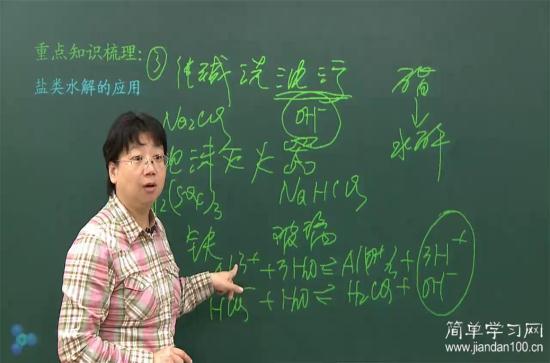 重点知识梳理:
盐类水解的应用
③ 纯碱洗油污
Na₂CO₃ OH⁻
泡沫灭火器
Al₂(SO₄)₃ NaHCO₃
铁 玻璃
Al³⁺ + 3H₂O ⇌ Al(OH)₃ + 3H⁺
HCO₃⁻ + H₂O ⇌ H₂CO₃ + OH⁻
↓
水解
简单学习网
www.jiandan100.cn